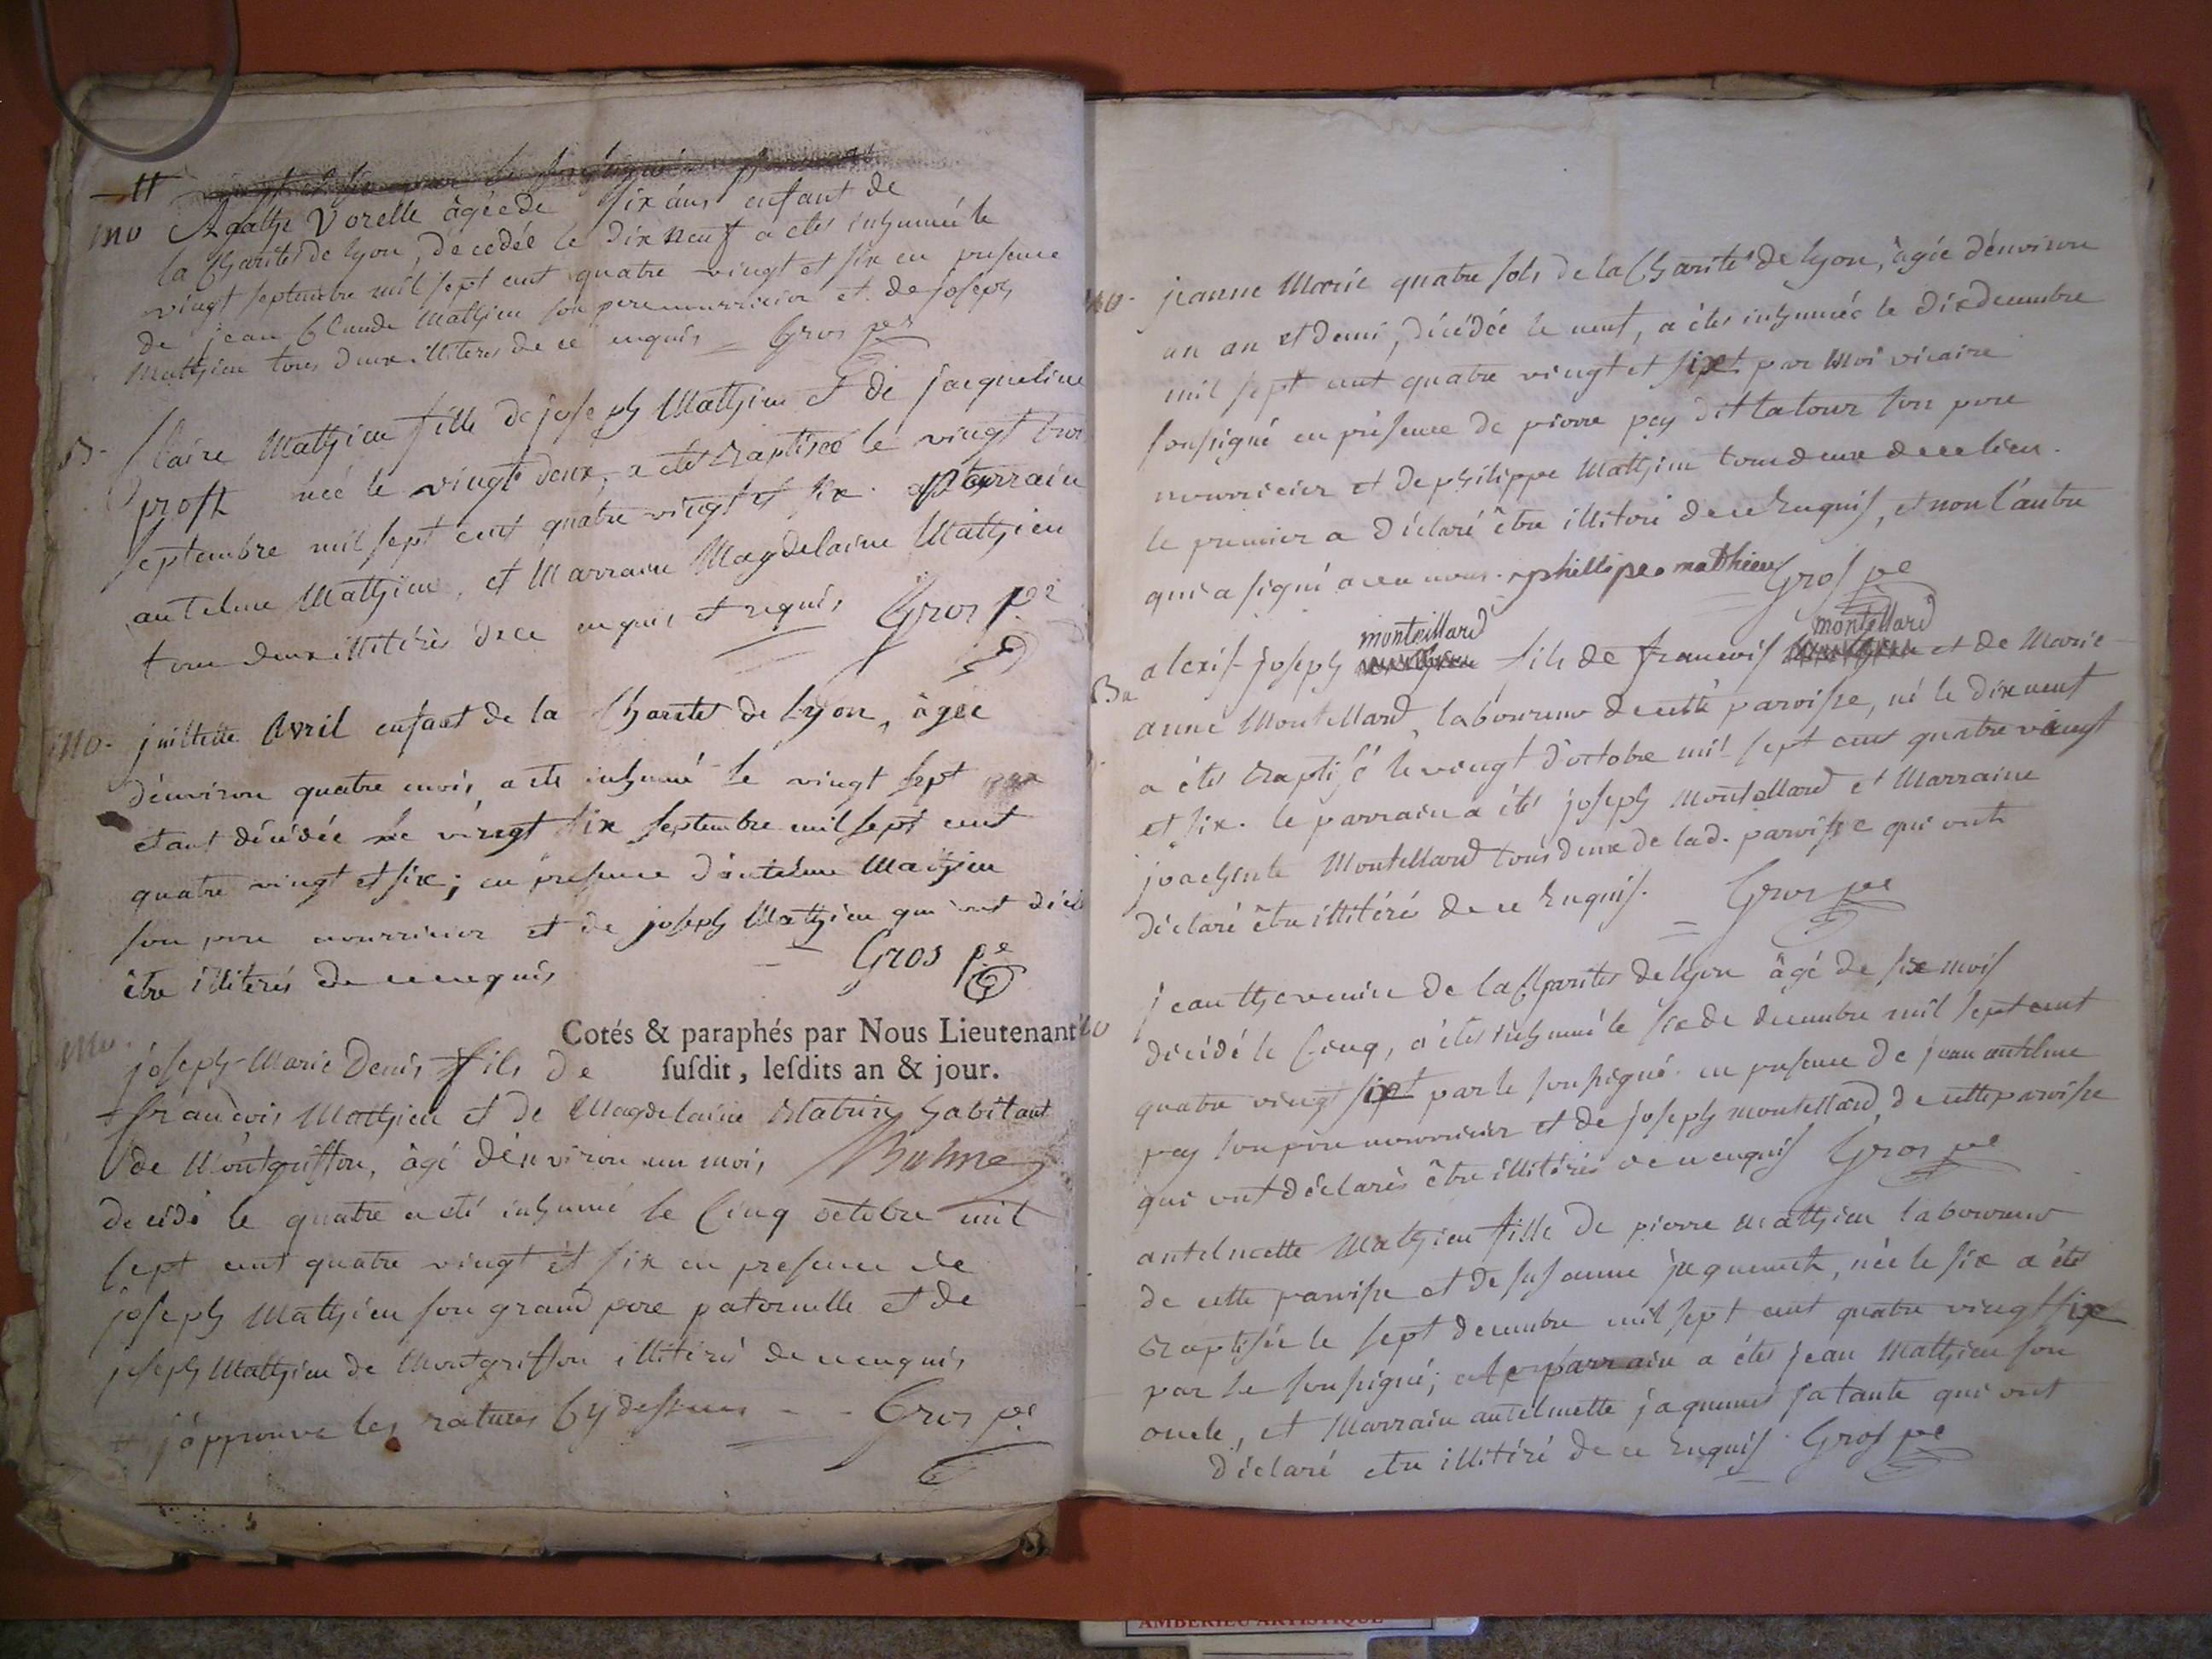 mo Agathe Vorelle âgée de six ans enfant de
la Charité de lyon, décédée le dix neuf a etés inhumée le
vingt septembre mil sept cent quatre vingt et six en presence
de jean Claude Mathieu son pere nourricier et de joseph
Mathieu tous deux illiteres de ce enquis = Gros pre
B. Claire Mathieu fille de joseph Mathieu et de jacqueline
prost née le vingt deux, a etés baptisée le vingt trois
septembre mil sept cent quatre vingt et six. parrain
antelme Mathieu, et Marraine Magdelaine Mathieu
tous deux illiterés de ce enquis et requis Gros pre
mo. juillette Avril enfant de la Charité de lyon, âgée
d'environ quatre mois, a ete inhumé le vingt sept
etant décédée le vingt six septembre mil sept cent
quatre vingt et six; en presence d'antelme Mathieu
son pere nourricier et de joseph Mathieu qui ont décl
être illiterés de ce enquis = Gros pre
Cotés & paraphés par Nous Lieutenant
susdit, lesdits an & jour.
mo. joseph-Marie Denis fils de
francois Mathieu et de Magdelaine habitant
de Montgriffon, âgé d'environ un mois
décédé le quatre a eté inhumé le Cinq octobre mil
sept cent quatre vingt et six en presence de
joseph Mathieu son grand pere paternelle et de
joseph Mathieu de Montgriffon illiterés de ce enquis
j'approuve les ratures Cy dessus - - Gros pre
mo. jeanne Marie quatre sols de la Charité de lyon, âgée d'environ
un an et demi, décédée le neuf, a étés inhumée le dix decembre
mil sept cent quatre vingt et six par Moi vicaire
soussigné en présence de pierre pey dit latour son pere
nourricier et de philippe Mathieu tous deux de ce lieu.
le premier a déclaré être illiteré de ce Enquis, et non l'autre
qui a signé avec nous. phillipe mathieu Gros pre
monteillard montellard
Ba alexis-joseph fils de francois et de Marie
anne Montellard, laboureur de cette paroisse, né le dix neuf
a étés baptisé le vingt d'octobre mil sept cent quatre vingt
et six. le parrain a étés joseph Montellard et Marraine
joachinte Montellard tous deux de lad. paroisse qui ont
déclaré être illitérés de ce Enquis. = Gros pre
mo jean thevenin de la Charité de lyon âgé de six mois
décédé le Cinq, a étés inhumé le six de decembre mil sept cent
quatre vingt six par le soussigné en presence de jean antelme
pey son père nourricier et de joseph montellard, de cette paroisse
qui ont déclarés être illitérés de ce enquis Gros pre
antelmette Mathieu fille de pierre Mathieu laboureur
de cette paroisse et de susanne jaquemet, née le six a étés
baptisée le sept decembre mil sept cent quatre vingt six
par le soussigné; le parrain a étés jean Mathieu son
oncle, et Marraine antelmette jaquemet sa tante qui ont
déclaré etre illitéré de ce Enquis. Gros pre
AMBERIEU ARTISTIQUE